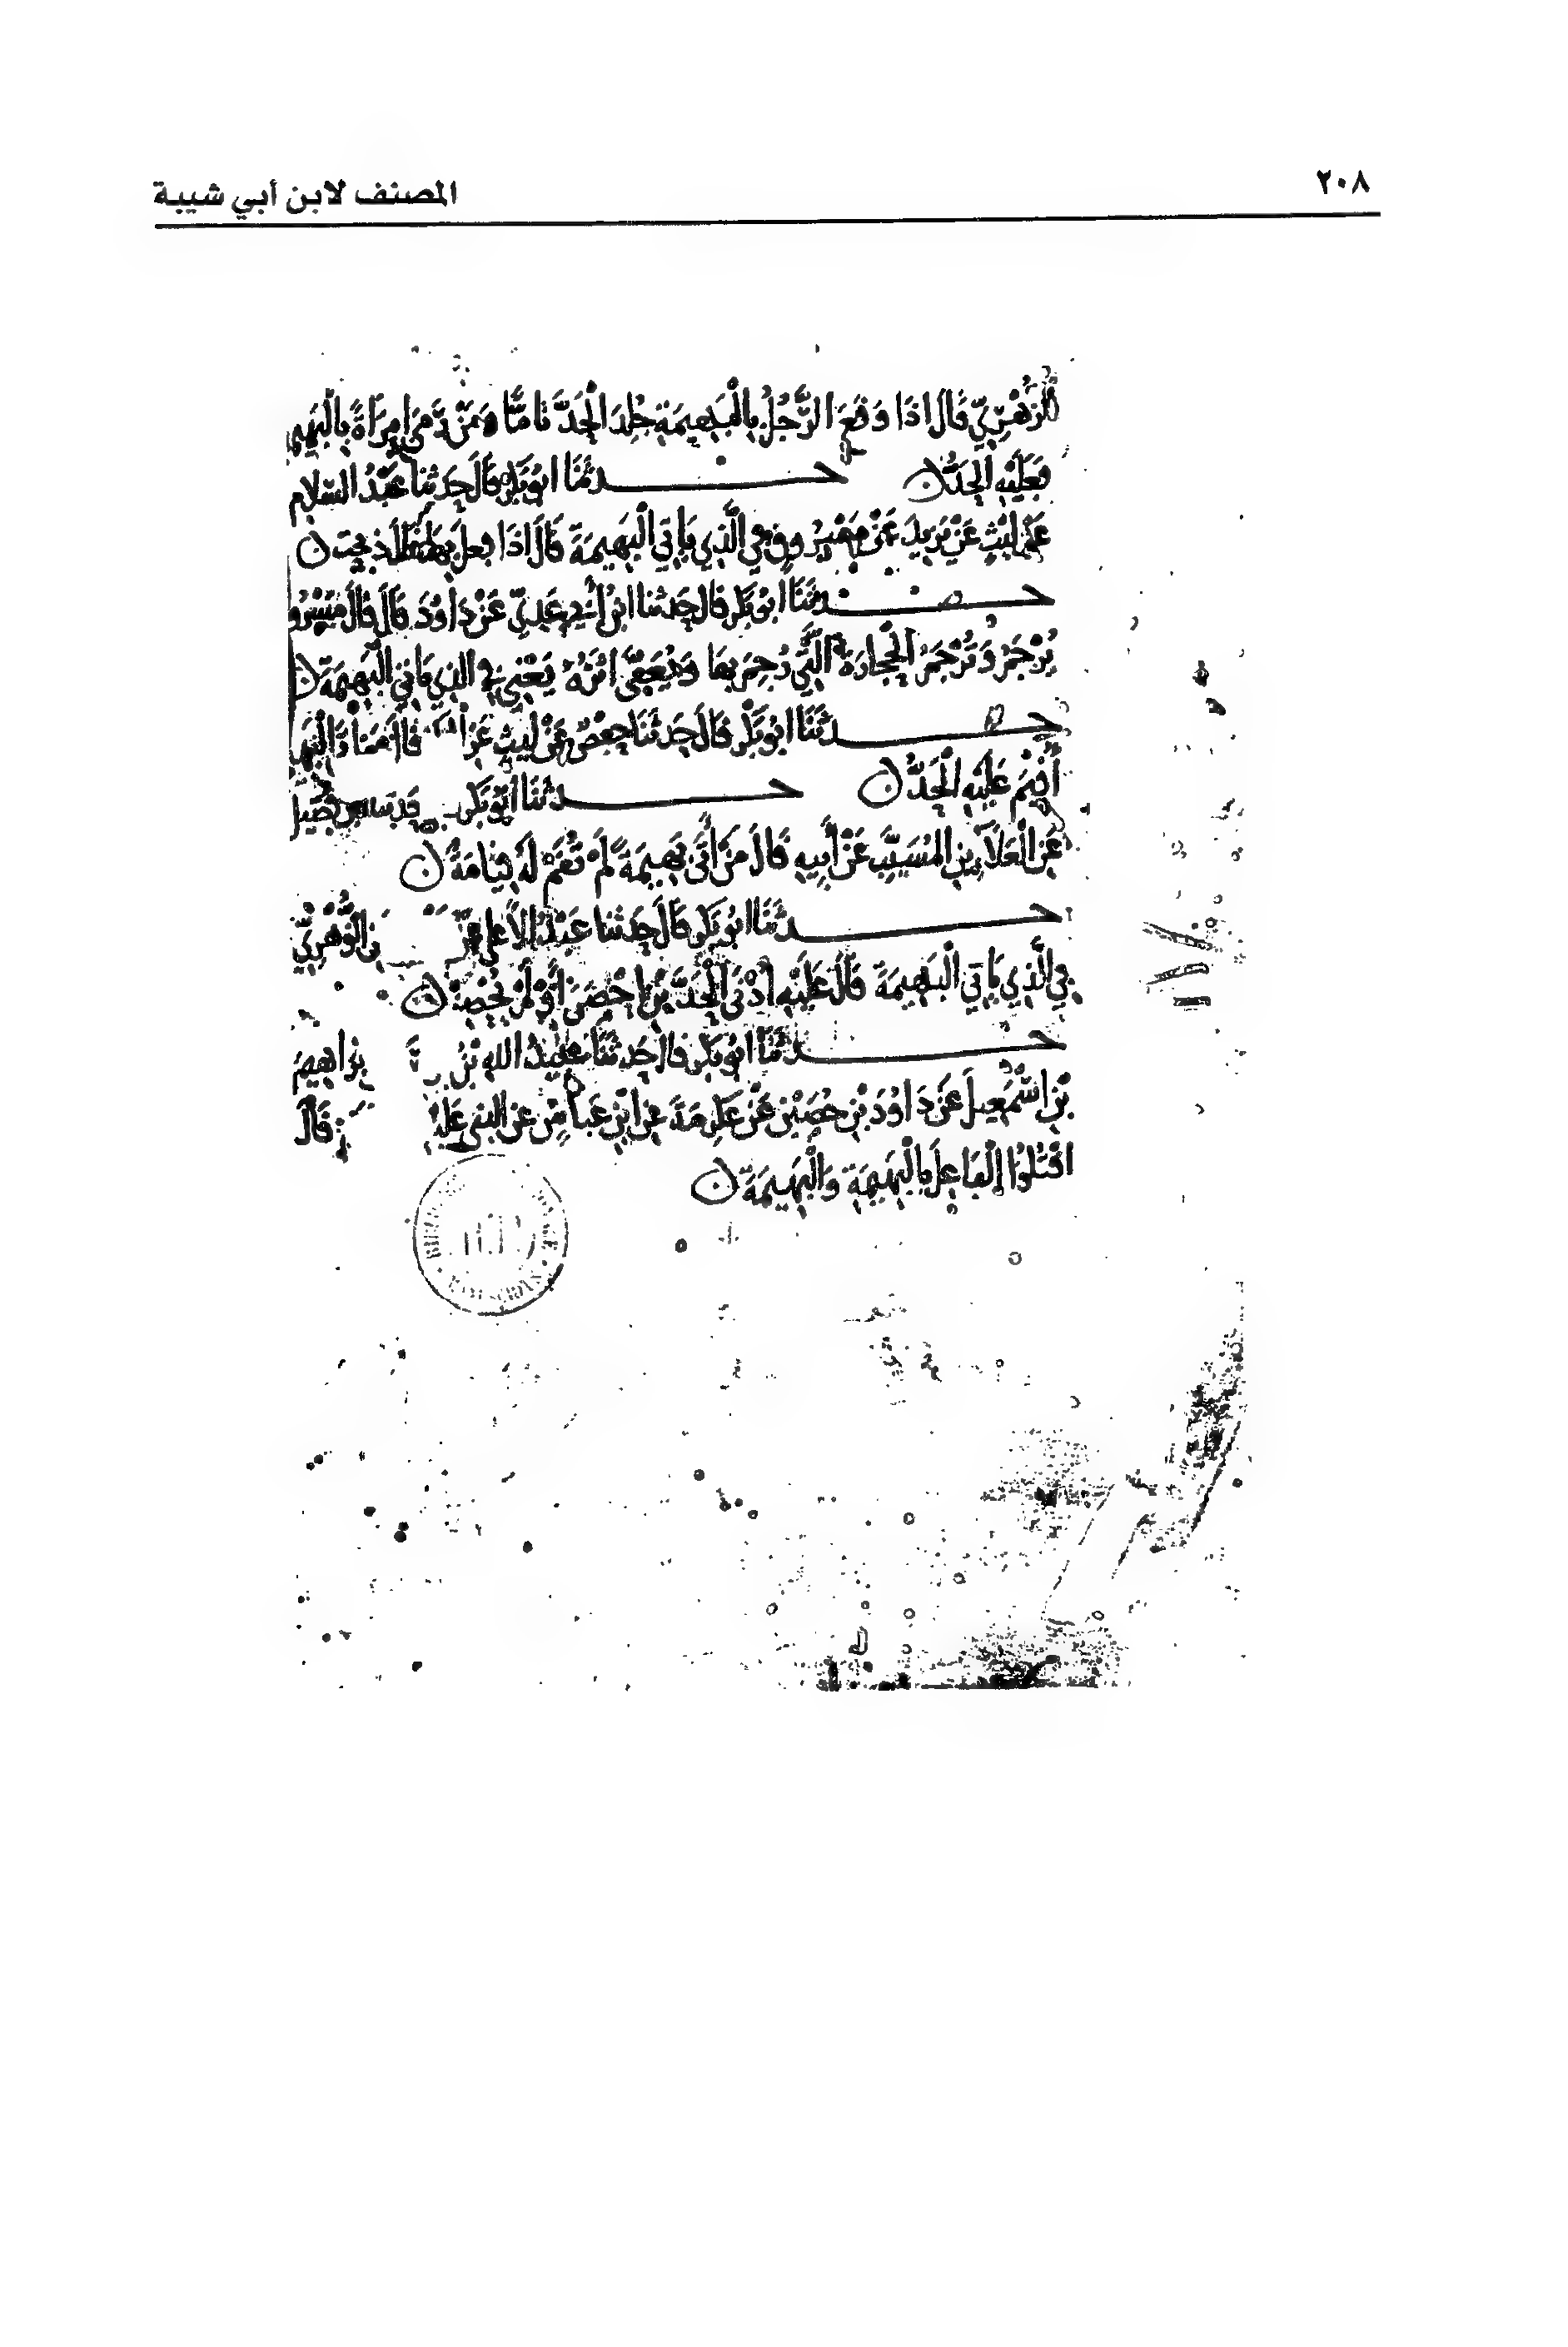 ٢٠٨
المصنف لابن أبي شيبة
الزُّهْرِيِّ قَالَ اذَا وَقَعَ الرَّجُلُ بِالْبَهِيمَةِ جُلِدَ الْحَدَّ تَامًّا وَمَنْ رَمَى امْرَأَةً بِالْبَهِيمَ
فَعَلَيْهِ الْحَدُّ حدثَنَا ابُو بَكْرٍ قَالَ حَدثنا عَبْدُ السَّلَامِ
عَنْ لَيْثٍ عَنْ يَزِيدَ عَنْ فِي الَّذِي يَاتِي الْبَهِيمَةَ قَالَ اذَا فعل ذبحت
حدثَنَا ابُو بَكْرٍ قال حَدثنا ابْنُ أَبِي عَدِيٍّ عَنْ دَاوُدَ قَالَ قَالَ مَسْرُو
يُرْجَمُ وَتُرْجَمُ الْحِجَارَةُ الَّتِي رُجِمَ بِهَا وَيُعَفَّى اثَرُهُ يَعْنِي فِي الذي يَاتي الْبَهِيمَةَ
حدثَنَا ابُو بَكْرٍ قَالَ حَدثَنَا حَفْصٌ عَنْ لَيْثٍ الْبَهِ
أُقِيمَ عَلَيْهِ الْحَدُّ حدثَنَا ابُو بَكْرٍ
عَنِ الْعَلَاءِ بنِ الْمُسَيَّبِ عَنْ أَبِيهِ قَالَ مَنْ أَتَى بَهِيمَةً لَمْ تُقَمْ لَهُ قِيَامَةٌ
حدثَنَا ابُو بَكْرٍ قَالَ حَدثنا عَبْدُ الْأَعْلى الزُّهْرِيِّ
فِي الَّذِي يَاتِي الْبَهِيمَةَ قَالَ عَلَيْهِ أَدْنَى الْحَدَّيْنِ احْصِنَ أَوْ لَمْ يُحْصِنْ
حدثَنَا ابُو بَكْرٍ قال حَدثَنَا عُبَيْدُ اللهِ بْنُ
بْنِ اسْمَعِيلَ عَنْ دَاوُدَ بْنِ حُصَيْنٍ عَنْ عِكْرِمَةَ عنِ ابْنِ عَبَّاسٍ عنِ النبي قَالَ
اقْتُلُوا الْفَاعِلَ بِالْبَهِيمَةِ وَالْبَهِيمَةَ